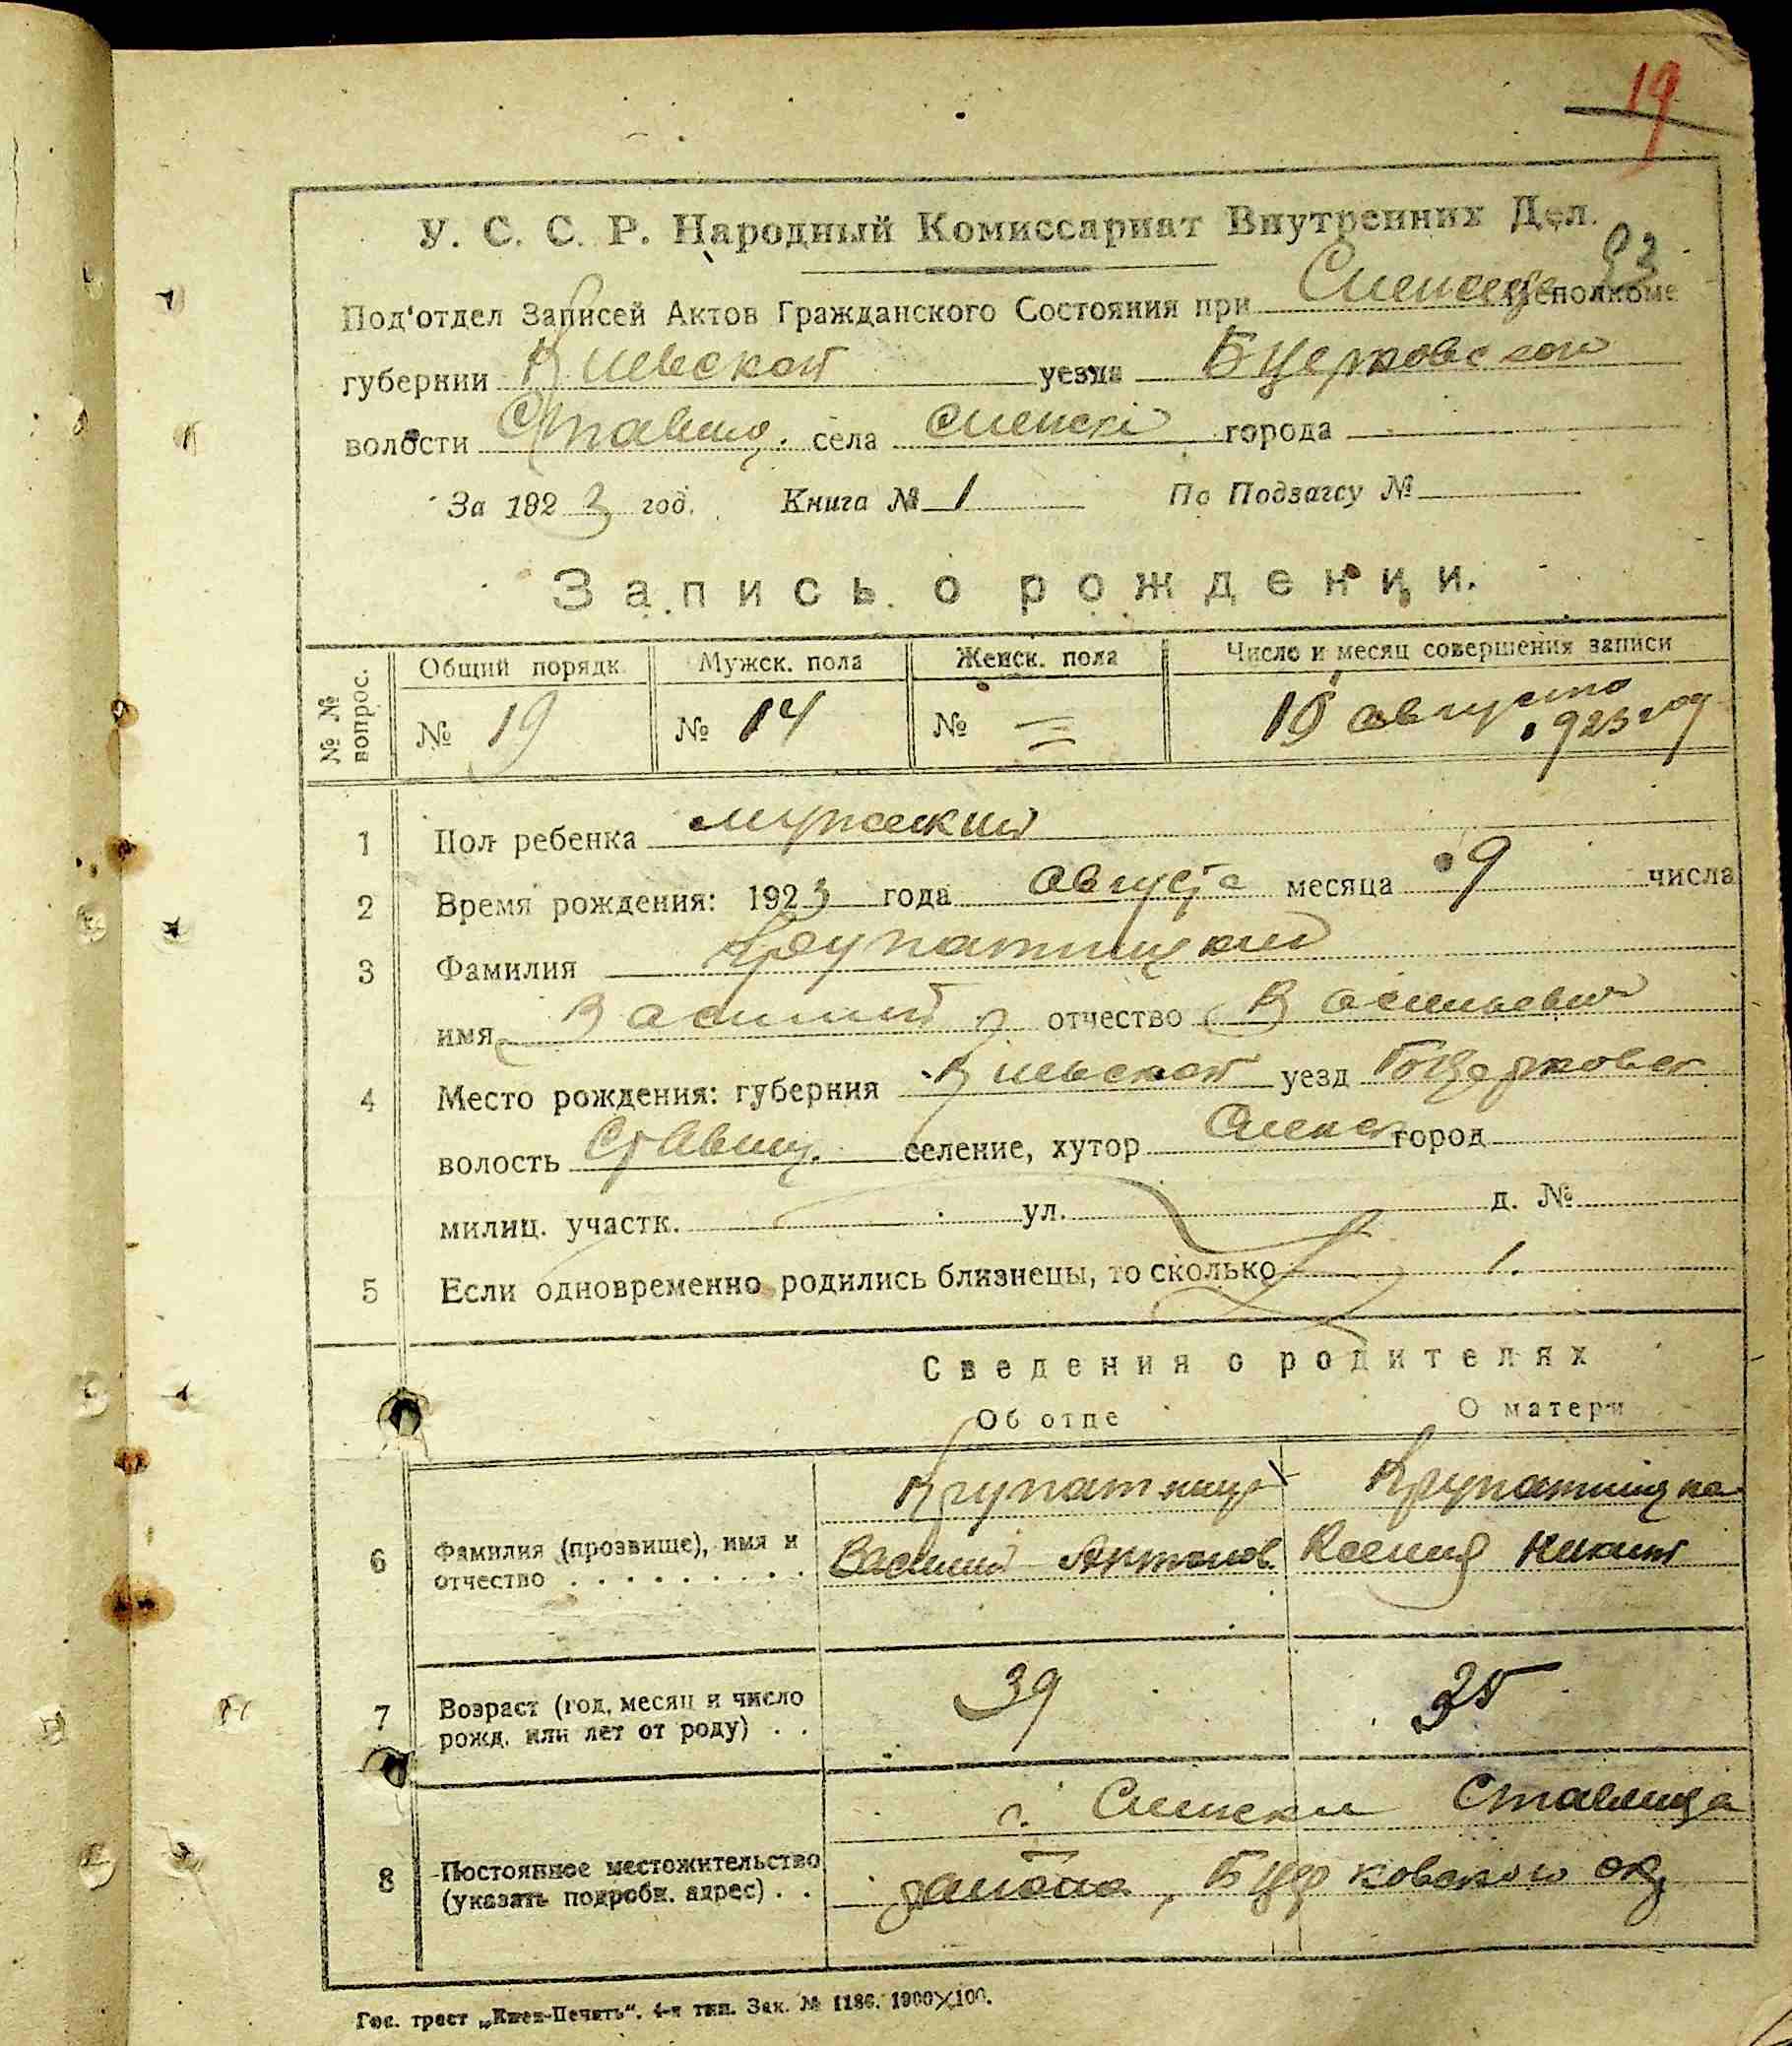 19
У. С. С. Р. Народный Комиссариат Внутренних Дел.
93
Под'отдел Записей Актов Гражданского Состояния при исполкоме
губернии Киевской уезда БЦерковского
волости Ставищ. села города
За 1923 год. Книга № 1 По Подзагсу №
Запись о рождении.
№ № вопрос.
Общий порядк. Мужск. пола Женск. пола Число и месяц совершения записи
№ 19 № 14 № = августа
1923 год
1 Пол ребенка мужский
2 Время рождения: 1923 года августа месяца 9 числа
3 Фамилия Крупатницкий
имя Василий отчество Васильевич
4 Место рождения: губерния Киевской уезд БЦерковск
волость Ставищ. селение, хутор город
милиц. участк. ул. д. №
5 Если одновременно родились близнецы, то сколько 1.
Сведения о родителях
Об отце О матери
Крупатницк Крупатницка
6 Фамилия (прозвище), имя и
отчество . . . . . . . . . Василий Антонов. Ксения Никит
7 Возраст (год, месяц и число
рожд. или лет от роду) . . 39 35
с. Ставища
8 Постоянное местожительство
(указать подробн. адрес) . . района, БЦерковского ок
Гос. трест „Киев-Печать“. 4-я тип. Зак. № 1186. 1900×100.